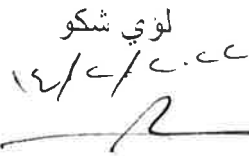 لؤي شكو
١٤/٢/٢٠٢٢